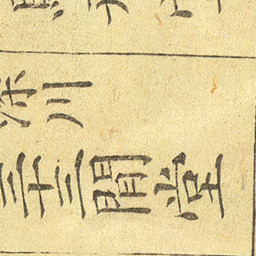 深川
三十三間堂